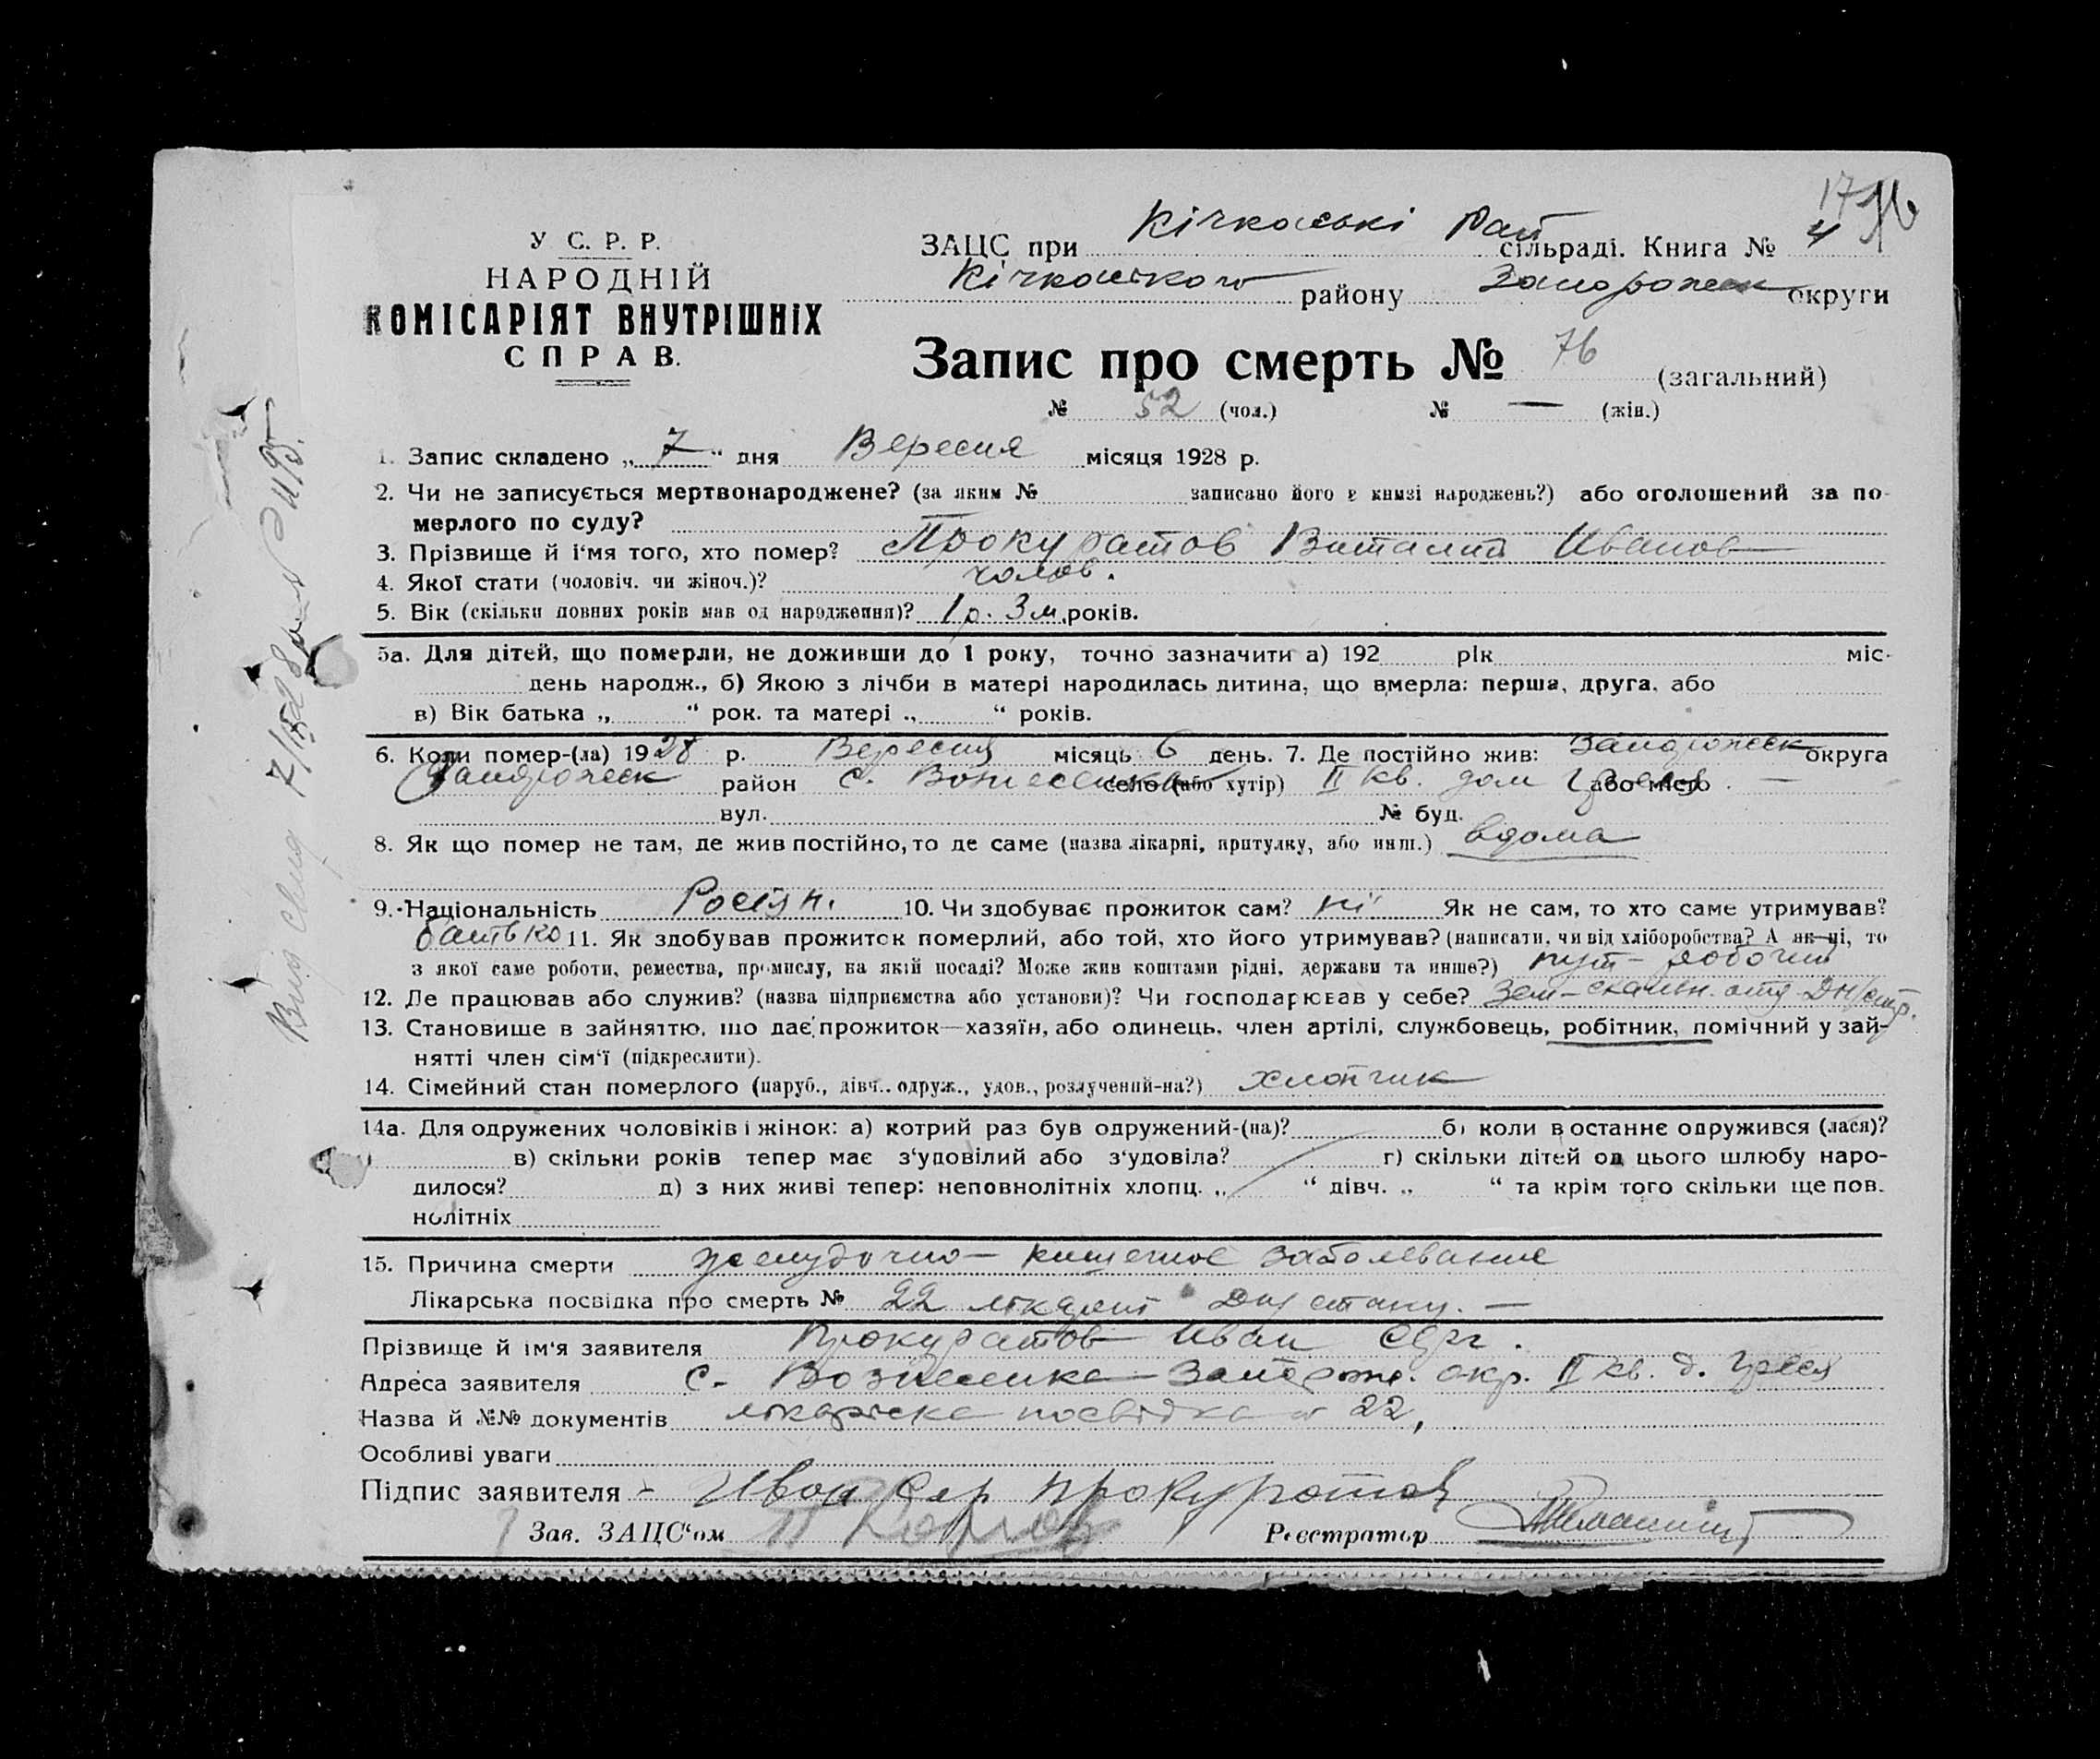 У С. Р. Р.
НАРОДНІЙ
КОМІСАРІЯТ ВНУТРІШНІХ
СПРАВ.
ЗАЦС при Кічкаські Рай сільраді. Книга № 4
Кічкаського району Запорожск округи
Запис про смерть № 76 (загальний)
№ 52 (чол.) № — (жін.)
1. Запис складено „7“ дня Вересня місяця 1928 р.
2. Чи не записується мертвонароджене? (за яким № записано його в книзі народжень?) або оголошений за по-
мерлого по суду?
3. Прізвище й і'мя того, хто помер? Прокуратов Виталий Иванов
4. Якої стати (чоловіч. чи жіноч.)? чолов.
5. Вік (скільки повних років мав од народження)? 1 р. 3 м. років.
5а. Для дітей, що померли, не доживши до 1 року, точно зазначити а) 192 рік міс-
день народж., б) Якою з лічби в матері народилась дитина, що вмерла: перша, друга, або
в) Вік батька „ “ рок. та матері „ “ років.
6. Коли помер-(ла) 1928 р. Вересня місяць 6 день. 7. Де постійно жив: Запорожск округа
Запорожск район С. Вознесенка село (або хутір) II кв. дом або місто —
вул. № буд.
8. Як що помер не там, де жив постійно, то де саме (назва лікарні, притулку, або инш.) вдома
9. Національність Росіян. 10. Чи здобуває прожиток сам? ні Як не сам, то хто саме утримував?
батько 11. Як здобував прожиток померлий, або той, хто його утримував? (написати, чи від хліборобства? А як ні, то
з якої саме роботи, ремества, промислу, на якій посаді? Може жив коштами рідні, держави та инше?) робочий
12. Де працював або служив? (назва підприємства або установи)? Чи господарював у себе? Зем-скальн. отд Дн/стр.
13. Становище в зайняттю, що дає прожиток—хазяїн, або одинець, член артілі, службовець, робітник, помічний у зай-
нятті член сім'ї (підкреслити).
14. Сімейний стан померлого (паруб., дівч., одруж., удов., розлучений-на?) хлопчик
14а. Для одружених чоловіків і жінок: а) котрий раз був одружений-(на)? б) коли востаннє одружився (лася)?
в) скільки років тепер має з'удовілий або з'удовіла? г) скільки дітей од цього шлюбу наро-
дилося? д) з них живі тепер: неповнолітніх хлопц. „ “ дівч. „ “ та крім того скільки ще пов.
нолітніх
15. Причина смерти желудочно-кишечное заболевание
Лікарська посвідка про смерть № 22 лікарні —
Прізвище й ім'я заявителя Прокуратов Иван Серг.
Адреса заявителя с. Вознесенка Запорож. окр. II кв. д.
Назва й №№ документів лікарська посвідка № 22,
Особливі уваги
Підпис заявителя - Иван Сер Прокуратов
Зав. ЗАЦС'ом
Реєстратор